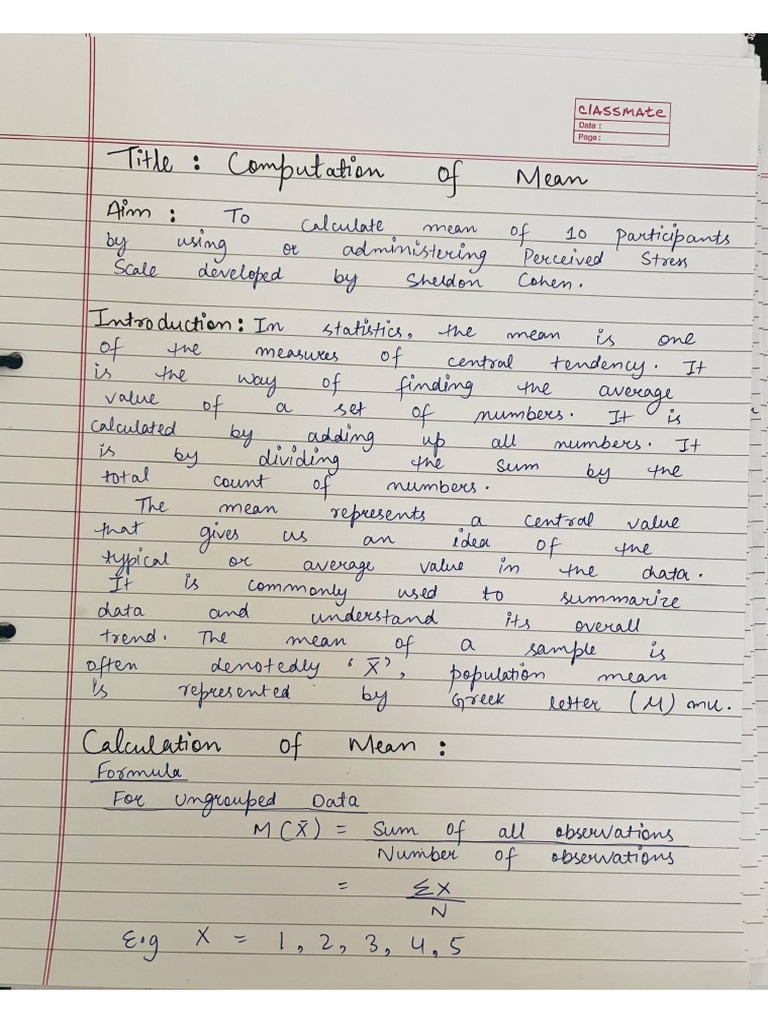 CLASSMATE
Date :
Page :
Title : Computation of Mean
Aim : To calculate mean of 10 participants
by using or administering Perceived Stress
Scale developed by Sheldon Cohen.
Introduction: In statistics, the mean is one
of the measures of central tendency. It
is the way of finding the average
value of a set of numbers. It is
calculated by adding up all numbers. It
is by dividing the sum by the
total count of numbers.
The mean represents a central value
that gives us an idea of the
typical or average value in the data.
It is commonly used to summarize
data and understand its overall
trend. The mean of a sample is
often denotedly ‘X̄’, population mean
is represented by Greek letter (M) mu.
Calculation of Mean :
Formula
For ungrouped Data
M(X̄) = Sum of all observations
Number of observations
= ΣX
N
E.g X = 1, 2, 3, 4, 5